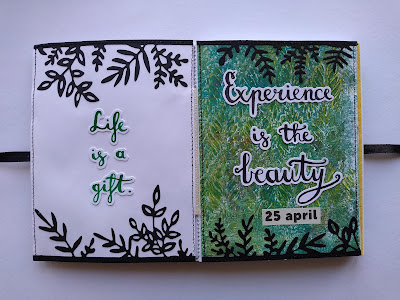 Life
is a
gift.
Experience
is the
beauty
25 april